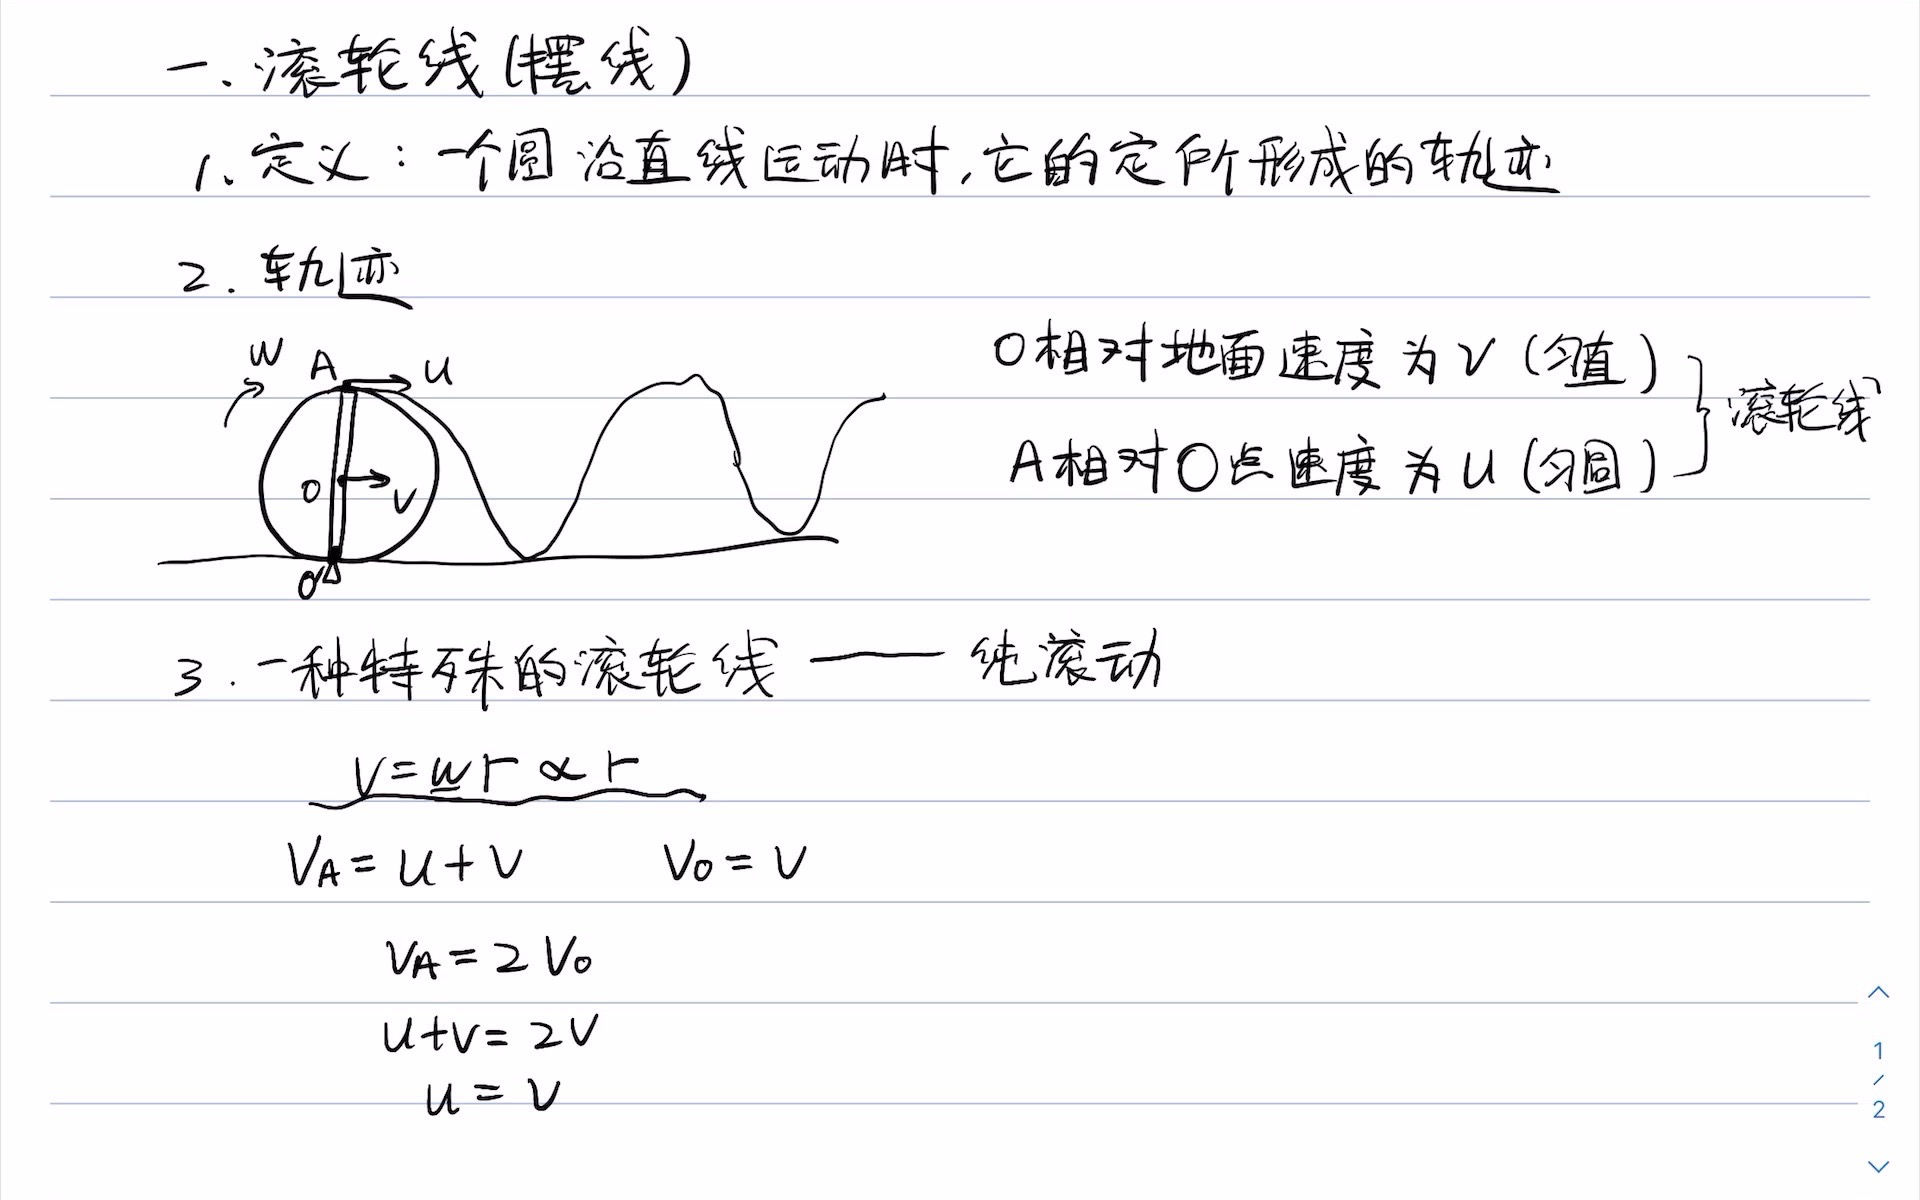 一、滚轮线(摆线)
1、定义:一个圆沿直线运动时,它的定所形成的轨迹
2. 轨迹
W A u
O v
O'
O相对地面速度为V(匀直)
A相对O点速度为u(匀圆)
滚轮线
3. 一种特殊的滚轮线——纯滚动
V=wr∝r
VA=u+v V0=v
VA=2V0
u+v=2v
u=v
1
/
2